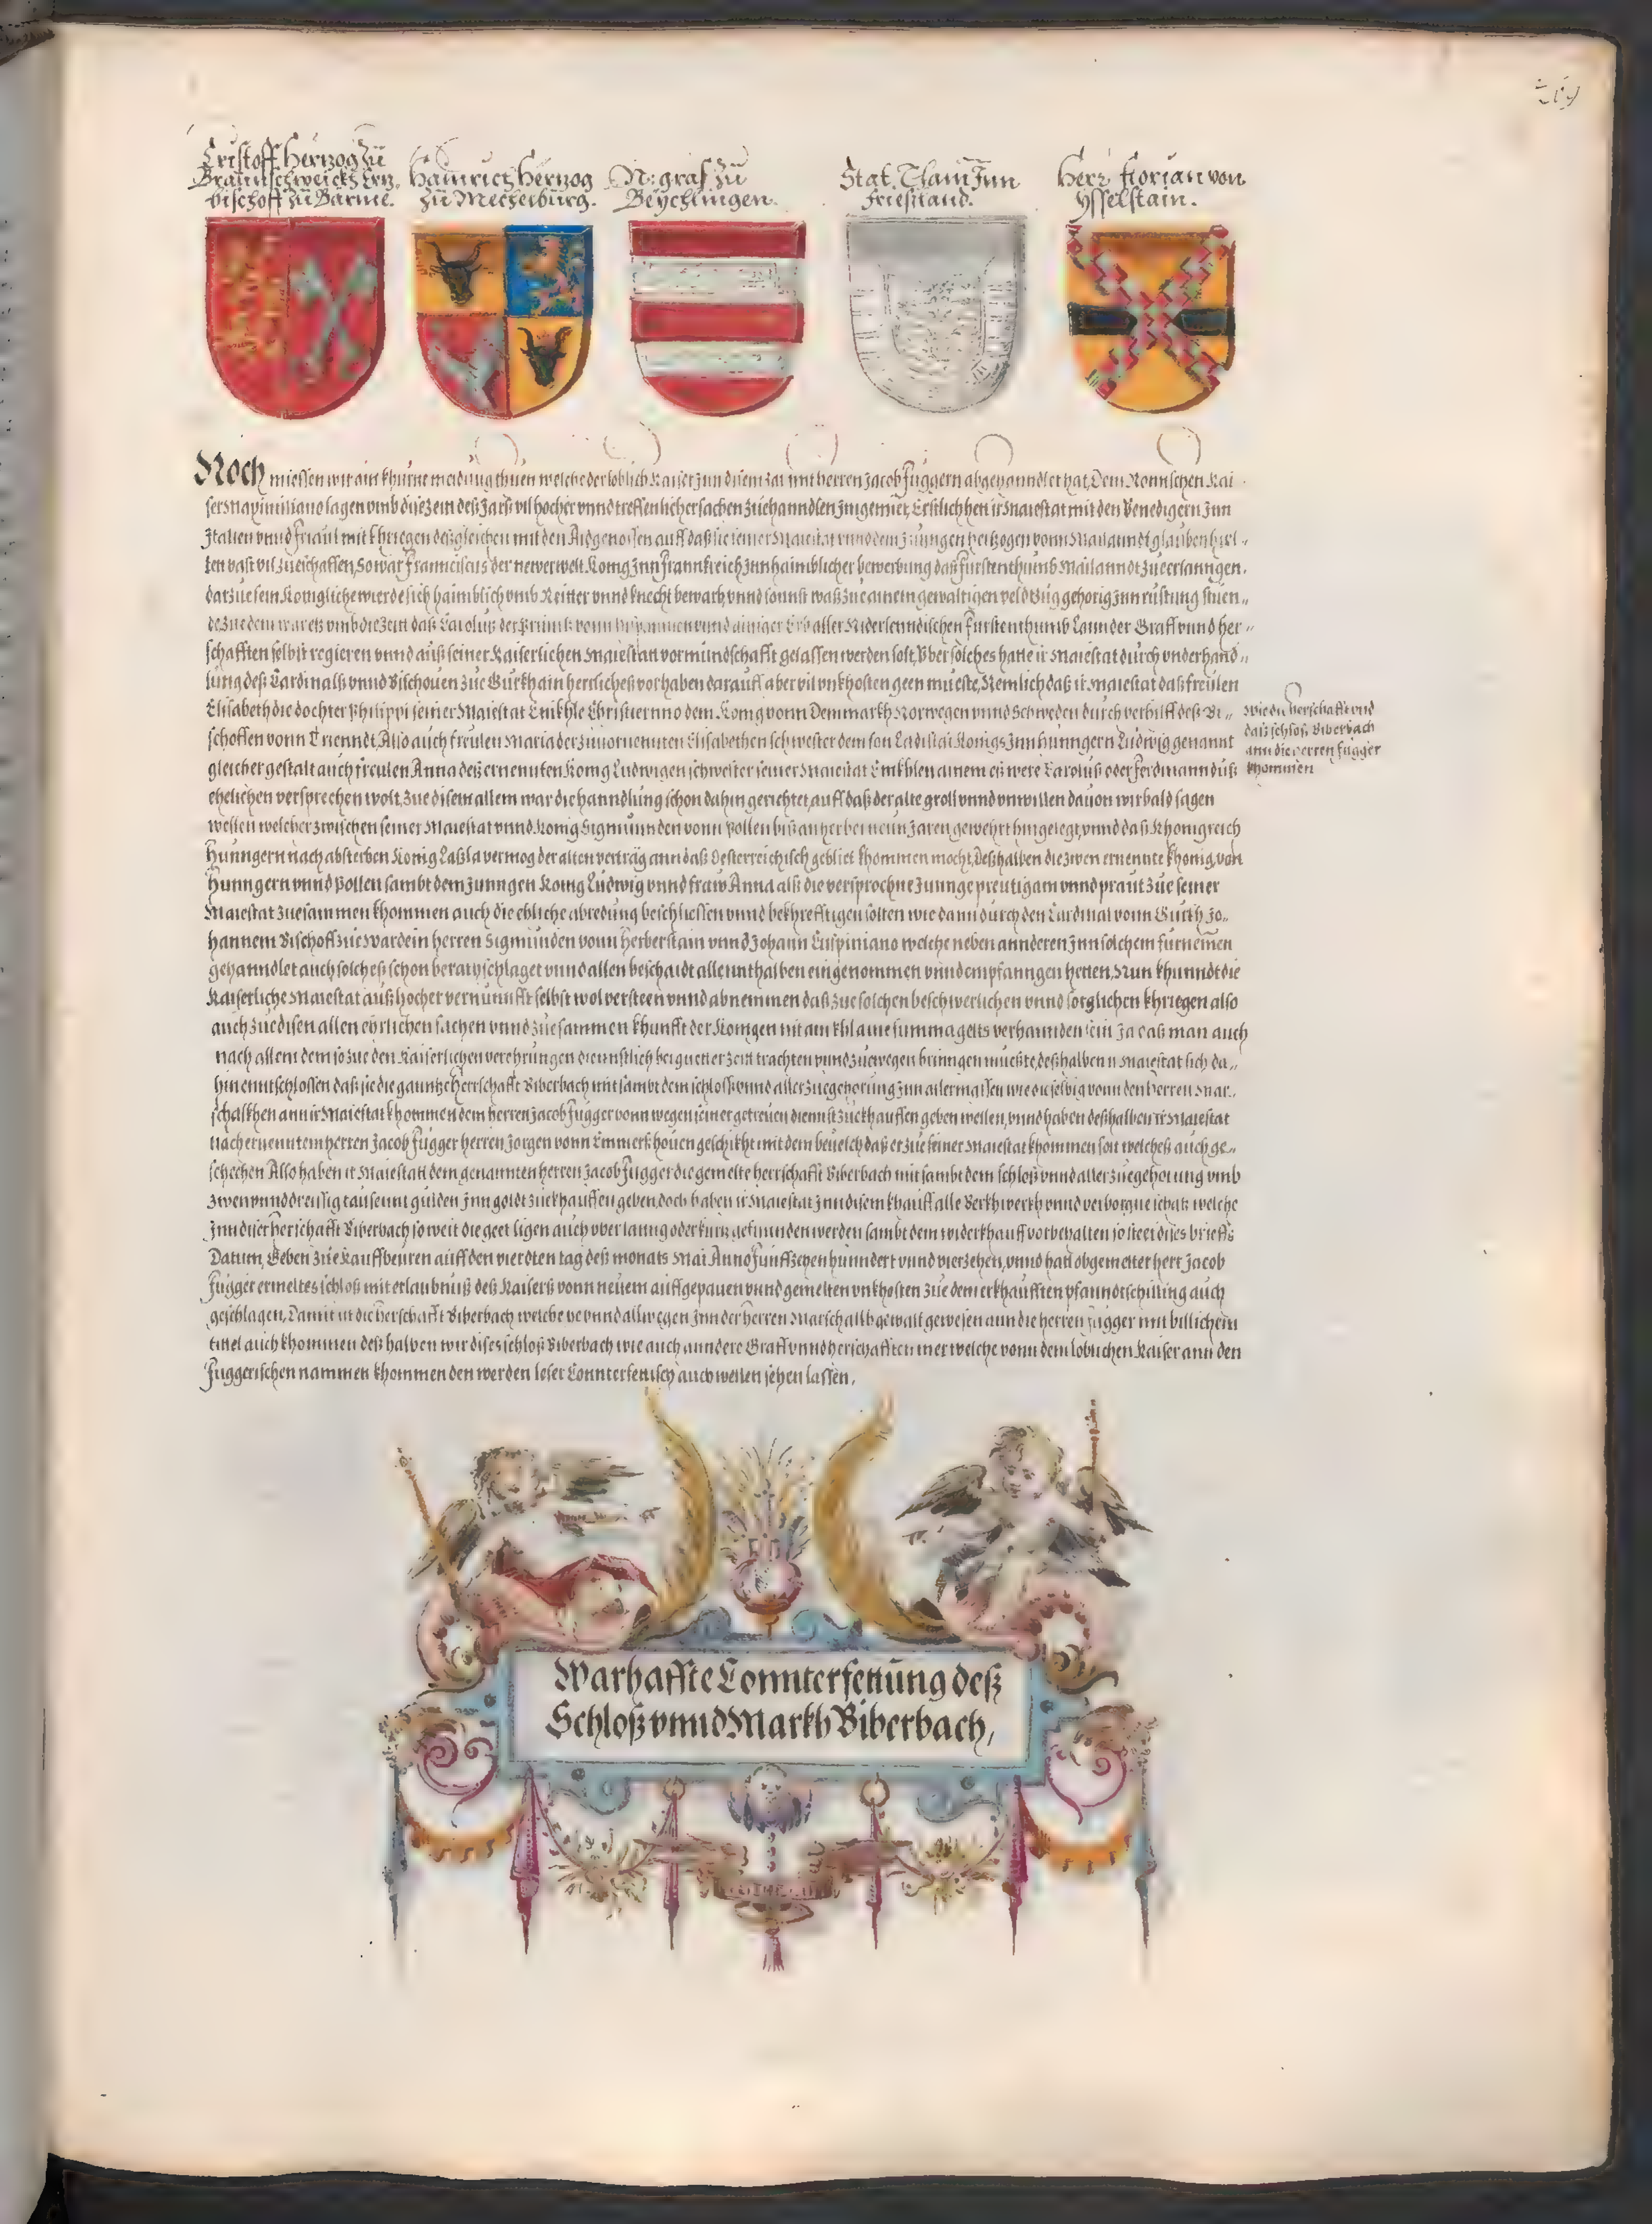 Cristoff Hertzog zu
Braunschweickh Ertz
bischoff zu Bärme.
Hainrich Hertzog
zu Meckelburg.
N: graf zu
Beychlingen.
Stat. Tham Inn
Frießland.
Herr Florian von
Ysselstain.
Noch miessen wir ain khurtze meldung thuen welche der loblich Kaiser Inn disem Jar mit herren Jacob Fuggern abgehanndlet hat, Dem Romischen Kai
ser Maximiliano lagen umb dise zeit deß Jars vil hocher unnd treffenlicher sachen zue hanndlen Inn gemiet, Erstlichen ir Maiestat mit den Venedigern Inn
Italien unnd Friaul mit khriegen deßgleichen mit den Aidgenossen auff daß sie seiner Maiestat unnd dem Jungen hertzogen vonn Mailanndt glauben hiel-
ten vast vil zue schaffen, So war Franciscus der new erwelt König Inn Frannkreich Inn haimblicher bewerbung das Furstenthumb Mailanndt zue erlanngen,
darzue sein Königliche wierde sich haimblich umb Reitter unnd knecht bewarb unnd sonnst waß zue ainem gewaltigen veldtzug gehörig Inn rüstung stuen-
de zue dem war es umb die zeitt daß Carolus der Prinntz vonn Hispannien unnd ainiger Erb aller Niderlenndischen Furstenthumb Lannder Graff unnd her-
schafften selbst regieren unnd auß seiner Kaiserlichen Maiestatt vormundschafft gelassen werden solt, Uber solches hatte ir Maiestat durch underhand-
lung deß Cardinalß unnd Bischoven zue Gurkh ain herrliches vorhaben darauff aber vil unkhosten geen mueste, Nemlich daß ir Maiestat daß freulen
Elisabeth die dochter Philippi seiner Maiestat Enikhle Christierno dem König vonn Denmarkh Norwegen unnd Schweden durch verhilff deß Bi-
schoffen vonn Triennt, Also auch freulen Maria der zuuor nennten Elisabethen schwester dem son Ladislai Königs Inn Hunngern Ludwig genannt
gleicher gestalt auch freulen Anna deß ernennten König Ludwigen schwester seiner Maiestat Enikhlen ainem es were Carolus oder Ferdinanndus
ehelichen versprechen wolt, zue disem allem war die hanndlung schon dahin gerichtet, auff daß der alte groll unnd unwillen dauon wir bald sagen
wellen welcher zwischen seiner Maiestat unnd König Sigmunden vonn Pollen biß anher bei neun Jaren gewehrt hingelegt, unnd daß Khönigreich
Hunngern nach absterben König Laßla vermog der alten verträg ann daß Oesterreichisch gebliet khommen mocht, Deßhalben die zwen ernennte Khönig von
Hunngern unnd Pollen sambt dem Junngen König Ludwig unnd fraw Anna alß die versprochne Junnge preutigam unnd praut zue seiner
Maiestat zuesammen khommen auch die ehliche abredung beschliessen unnd bekhrefftigen solten wie dann durch den Cardinal vonn Gurkh Jo-
hannem Bischoff zue Wardein herren Sigmunden vonn Herberstain unnd Johann Cuspiniano welche neben annderen Inn solchem furnemen
gehanndlet auch solches schon berathschlaget unnd allen beschaidt allennthalben eingenommen unnd empfanngen hetten, Nun khunndt die
Kaiserliche Maiestat auß hocher vernunnfft selbst wol versteen unnd abnemmen daß zue solchen beschwerlichen unnd sorglichen khriegen also
auch zue disen allen ehrlichen sachen unnd zuesammen khunfft der Königen nit ain khlaine summa gelts verhannden sein Ja daß man auch
nach allem dem so zue den Kaiserlichen verehrungen dienstlich bei guetter zeitt trachten unnd zue wegen brinngen mueßte, deßhalben ir Maiestat sich da-
hin enntschlossen daß sie die ganntze Herrschafft Biberbach mit sambt dem schloß unnd aller zuegehörung Inn allermassen wie die selbig vonn den herren Mar-
schalkhen ann ir Maiestat khommen dem herren Jacob Fugger vonn wegen seiner getreuen diennst zue khauffen geben wellen, unnd haben deßhalben ir Maiestat
nach ernenntem herren Jacob Fugger herren Jorgen vonn Emmerßhouen geschikht mit dem beuelch daß er zue seiner Maiestat khommen solt welches auch ge-
schechen Also haben ir Maiestatt dem genannten herren Jacob Fugger die gemelte herrschafft Biberbach mit sambt dem schloß unnd aller zuegehorung umb
zwenunnddreissig tausennt gulden Inn goldt zue khauffen geben, doch haben ir Maiestat Inn disem khauff alle Berkhwerkh unnd verborgne schätz welche
Inn diser herschafft Biberbach so weit die geet ligen auch uber lanng oder kurtz gefunnden werden sambt dem widerkhauff vorbehalten so steet dises brieffs
Datum, Geben zue Kauffbeuren auff den vierdten tag deß monats Mai Anno Funffzehen hunndert unnd vierzehen, unnd hatt obgemelter herr Jacob
Fugger ermeltes schloß mit erlaubnuß deß Kaisers vonn neuem auffgepauen unnd gemelten unkhosten zue dem erkhaufften pfanndtschilling auch
geschlagen, Damit ist die herschafft Biberbach welche ye unnd allwegen Inn der herren Marschallh gewalt gewesen ann die herren Fugger mit billichem
tittel auch khommen deß halben wir dises schloß Biberbach wie auch anndere Graff unnd herschafften mer welche vonn dem loblichen Kaiser ann den
Fuggerischen nammen khommen den werden leser Connterfettisch auch wellen sehen lassen,
Wie die herschafft und
das schloß Biberbach
ann die herren Fugger
khommen
Warhaffte Connterfettung deß
Schloß unnd Markh Biberbach,